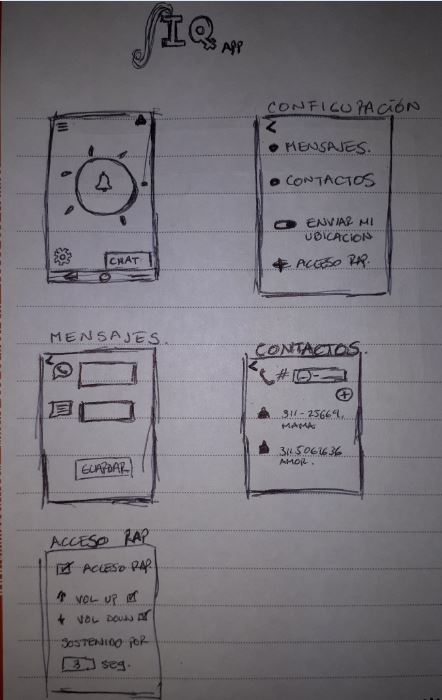 SIQ APP
CHAT
CONFIGURACIÓN
<
• MENSAJES.
• CONTACTOS
ENVIAR MI
UBICACION
ACCESO RAP.
MENSAJES.
<
GUARDAR
CONTACTOS.
<
# () -
+
311-25664.
MAMA
3115061636
AMOR.
ACCESO RAP
ACCESO RAP.
↑ VOL UP
↓ VOL DOWN
SOSTENIDO POR
3 SEG.